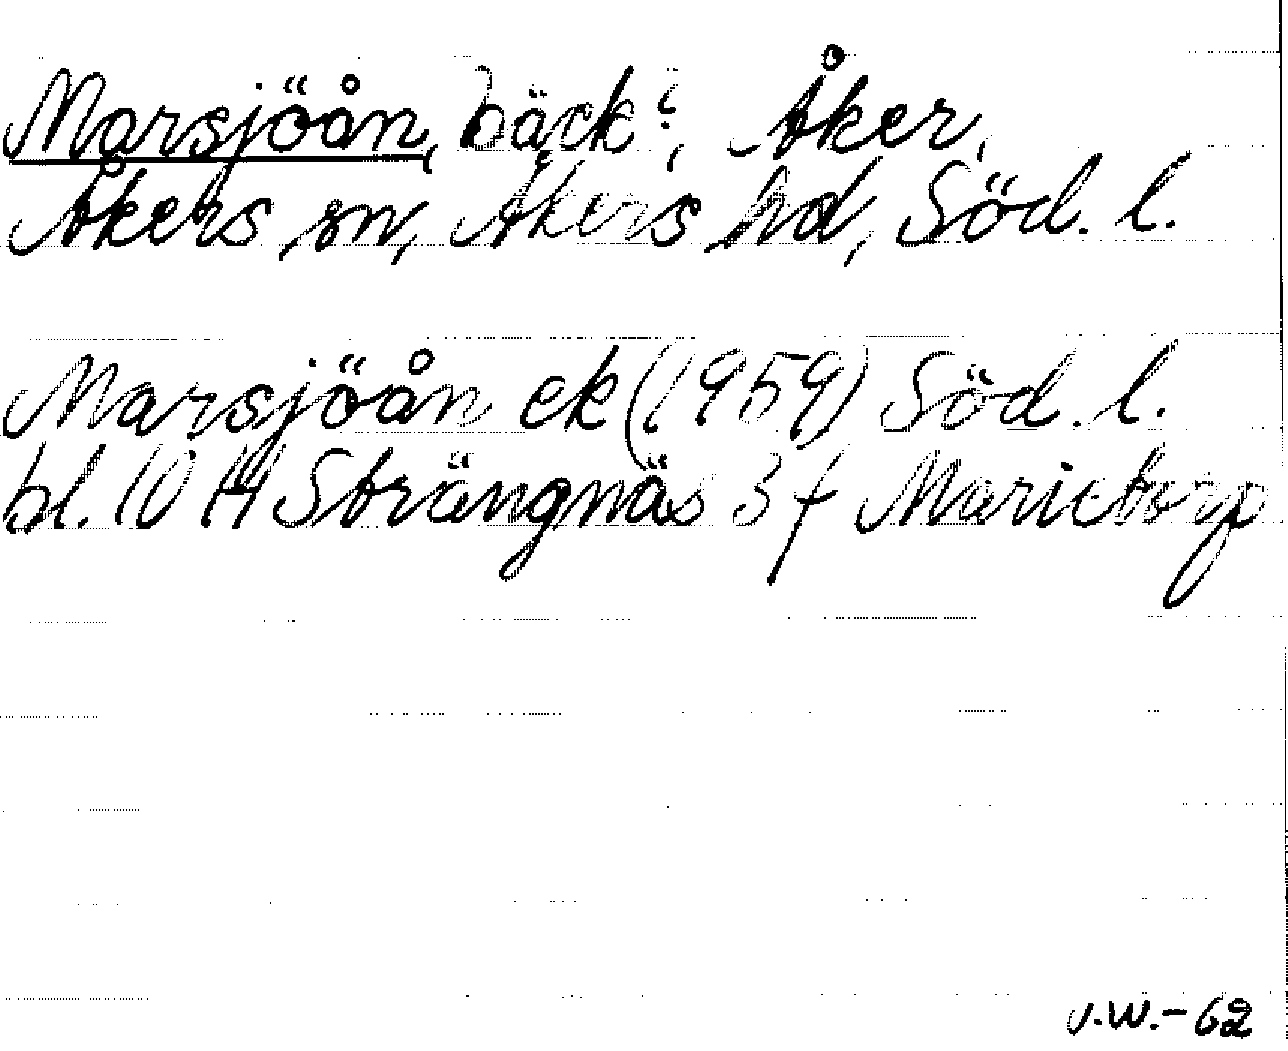 Marsjöån, bäck?, Åker,
Åkers sn, Åkers hd, Söd. l.
Marsjöån ek (1959) Söd. l.
bl. 10 H Strängnäs 3 f Marietorp
v.W.-62